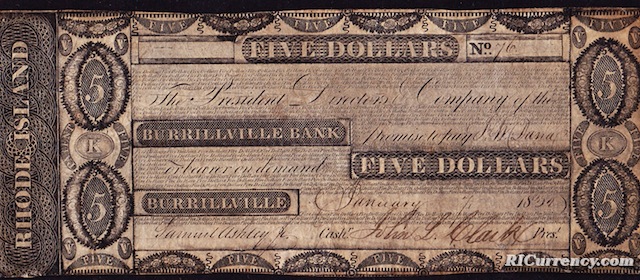 RHODE ISLAND
FIVE
FIVE DOLLARS No 76
The President Directors & Company of the
BURRILLVILLE BANK promise to pay
or bearer on demand FIVE DOLLARS
BURRILLVILLE January
Cashr. John L. Clark Pres.
5
K
5
5
K
5
FIVE
RICurrency.com